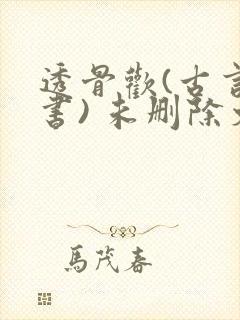 透骨歡(古言
書)未删除
馬茂春